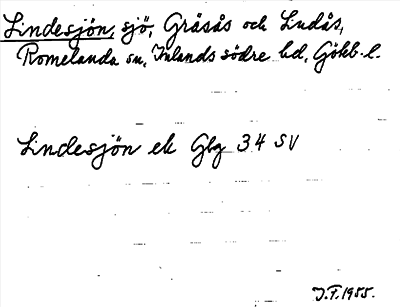 Lindesjön, sjö, Gråsås och Ludås,
Romelanda sn, Inlands södre hd, Götb. l.
Lindesjön ek Gbg 34 SV
J.F. 1955.